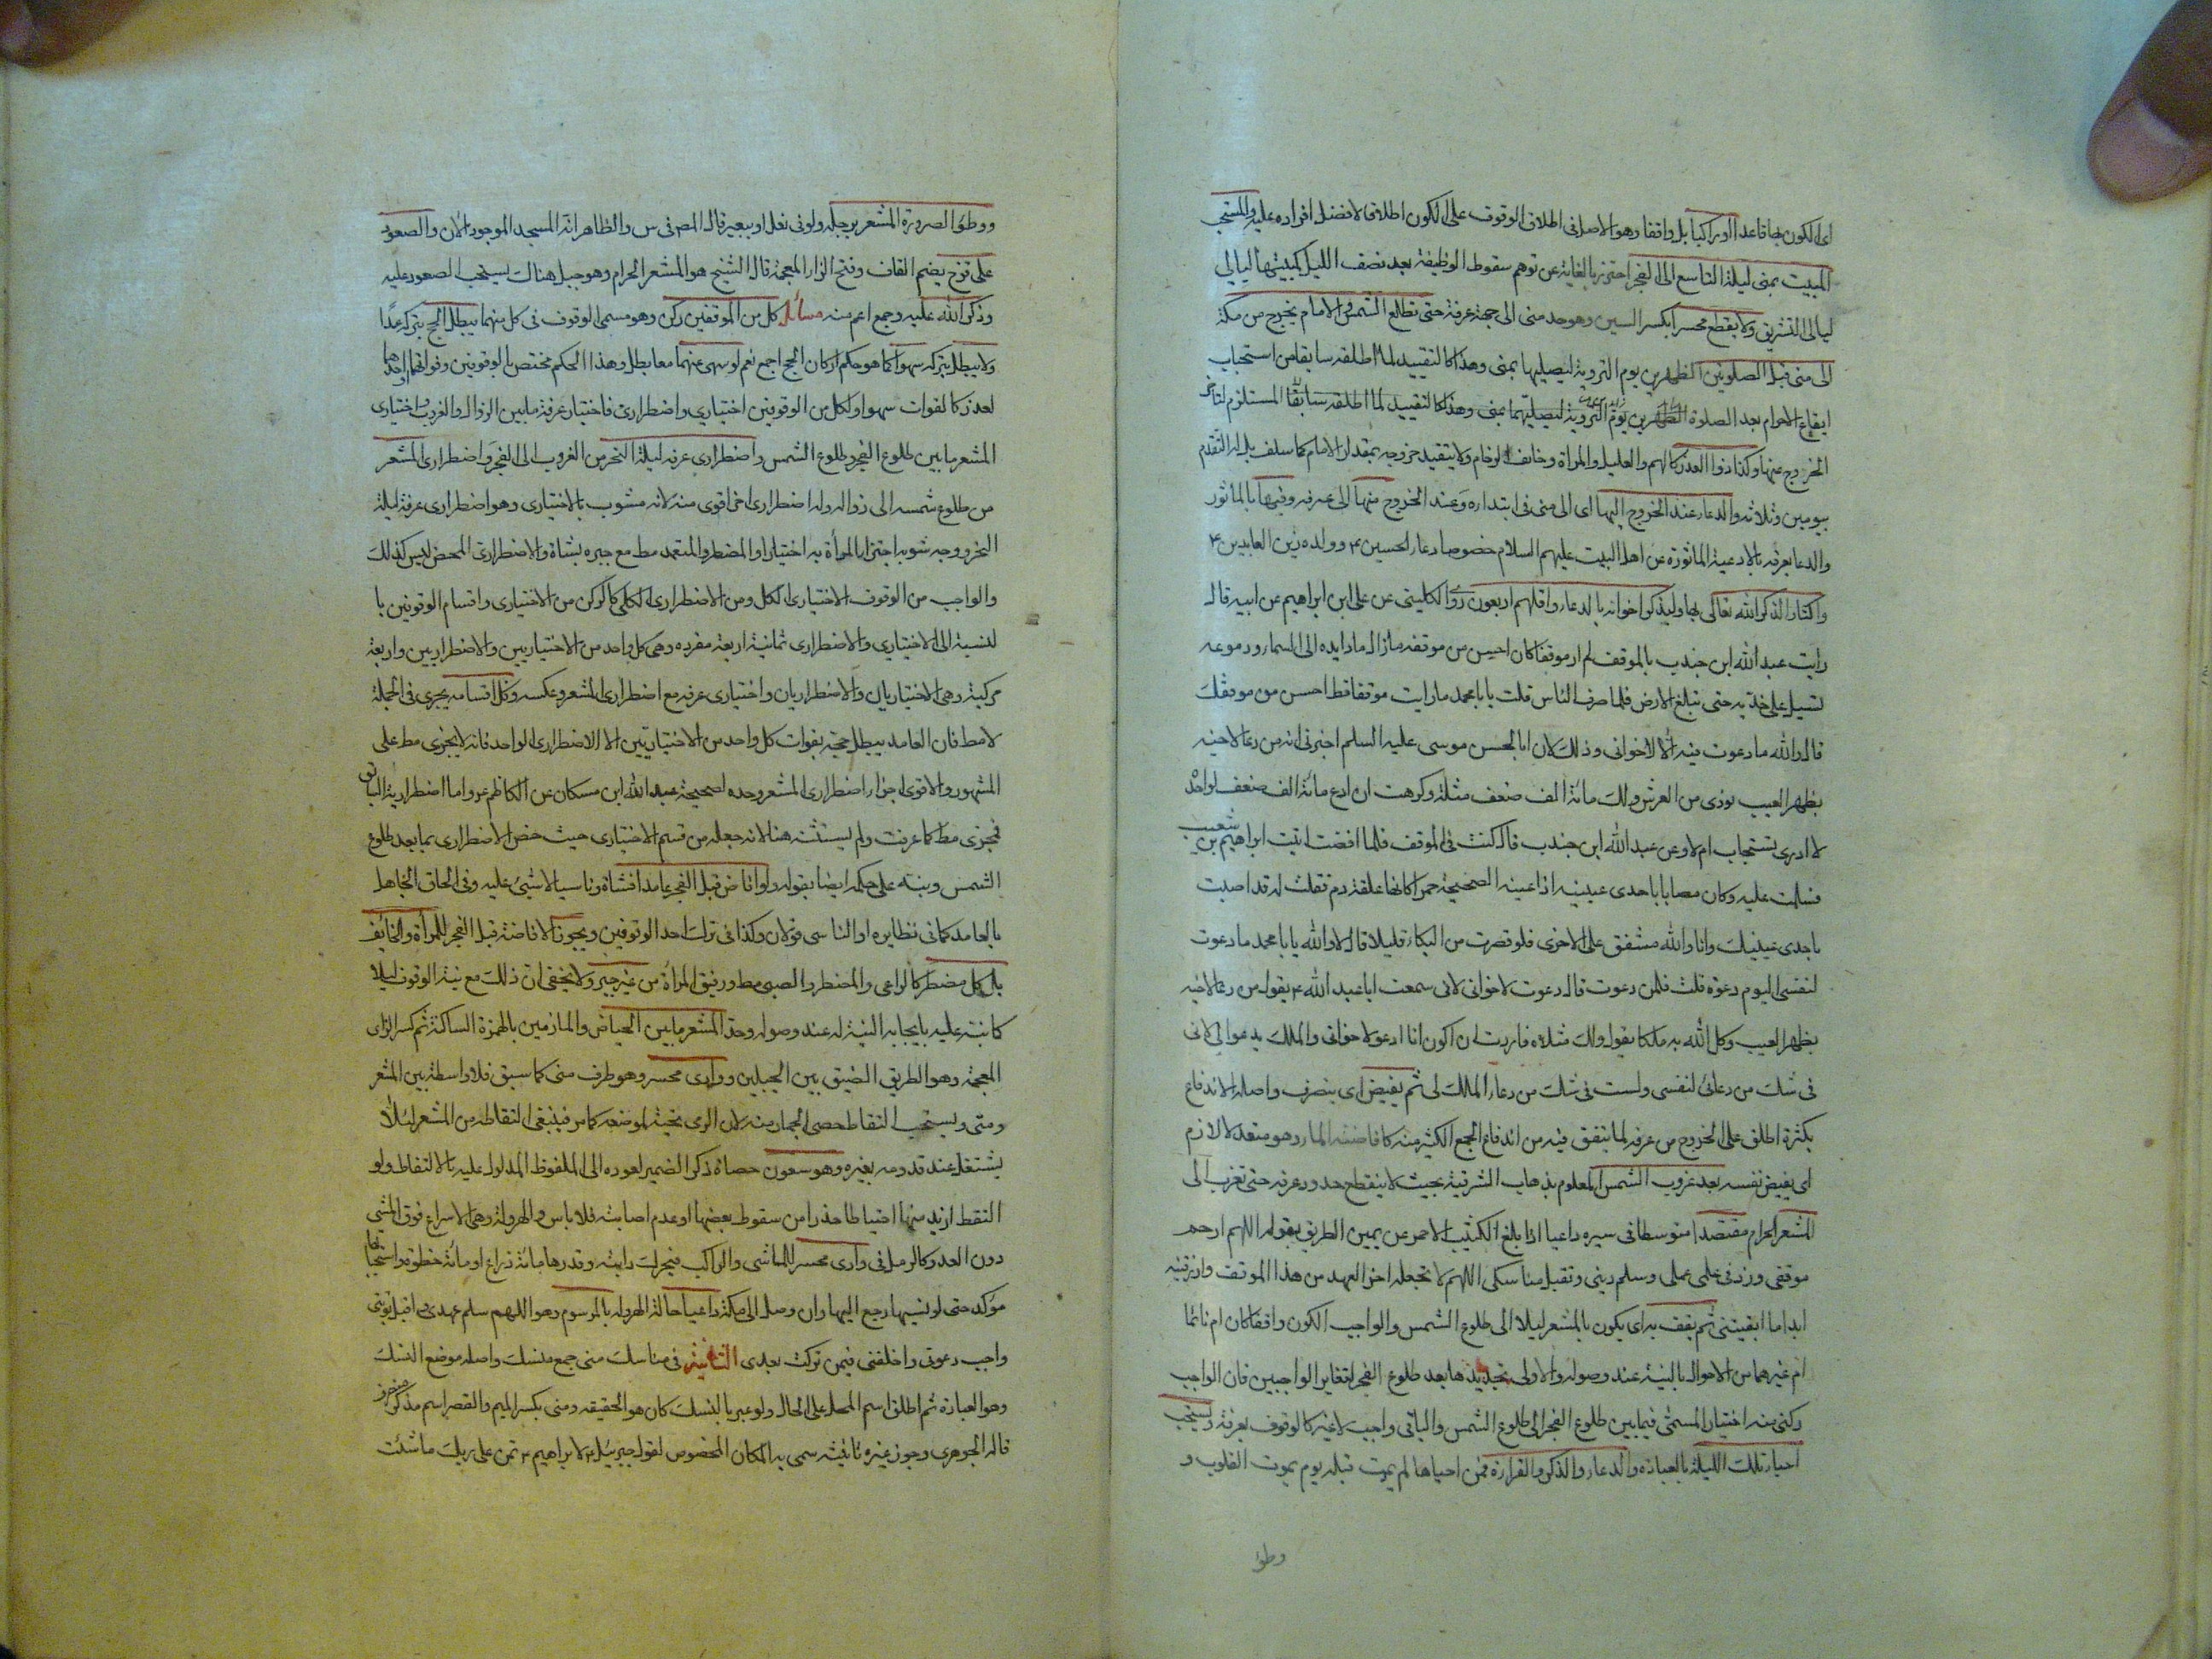 اى الكون بها قاعدا او راكبا بل واقفا وهو الاصل فى اطلاق الوقوف على الكون اطلاقا لافضل افراده عليه والمستحب
المبيت بمنى ليلة التاسع الى الفجر احترز بالغاية عن توهم سقوط الوظيفة بعد نصف الليل كمبيتها ليالى
ليالى التشريق ولا يقطع محسرا بكسر السين وهو حد منى الى جهة عرفة حتى تطلع الشمس والامام يخرج من مكة
الى منى قبل الصلوتين الظهرين يوم التروية ليصليهما بمنى وهذا كالتقييد لما اطلقه سابقا من استحباب
ايقاع الاحرام بعد الصلوة الظهرين يوم التروية ليصليهما بمنى وهذا كالتقييد لما اطلقه سابقا المستلزم لتاخر
الخروج عنها وكذا ذوا العذر كالهم والعليل والمراة وخايف الزحام ولا يتقيد خروجه بمقدار الامام كما سلف بل له التقدم
بيومين وثلاثه والدعاء عند الخروج اليها اى الى منى فى ابتداره وعند الخروج منها الى عرفه وفيها بالماثور
والدعا بعرفه بالادعية الماثورة عن اهل البيت عليهم السلام خصوصا دعاء الحسين ع وولده زين العابدين ع
واكثار الذكر الله تعالى بها وليذكر اخوانه بالدعاء واقلهم اربعون روى الكلينى عن على ابن ابراهيم عن ابيه قال
رايت عبد الله ابن جندب بالموقف لم ار موقفا كان احسن من موقفه مازال مادا يده الى السماء ودموعه
تسيل على خديه حتى تبلغ الارض فلما صرف الناس قلت يا با محمد ما رايت موقفا قط احسن من موقفك
قال والله ما دعوت فيه الا لاخوانى وذلك لان ابا الحسن موسى عليه السلم اخبرنى انه من دعا لاخيه
بظهر الغيب نودى من العرش ولك مائة الف ضعف مثله وكرهت ان ادع مائة الف ضعف لواحدة
لا ادرى تستجاب ام لا وعن عبد الله ابن جندب قال كنت فى الموقف فلما افضت اتيت ابراهيم بن شعيب
فسلمت عليه وكان مصابا باحدى عينيه اذا عينه الصحيحة حمرا كانها علقة دم فقلت له قد اصبت
باحدى عينيك وانا والله مشفق على الاخرى فلو قصرت من البكاء قليلا قال لا والله يا با محمد ما دعوت
لنفسى اليوم دعوة قلت فلمن دعوت قال دعوت لاخوانى لانى سمعت ابا عبد الله ع يقول من دعا لاخيه
بظهر الغيب وكل الله به ملكا يقول ولك مثلاه فاردت ان اكون انا ادعو لاخوانى والملك يدعو الى لانى
فى شك من دعائى لنفسى ولست فى شك من دعاء الملك لى ثم يفيض اى ينصرف واصله الاندفاع
بكثرة اطلق على الخروج من عرفه لما يتفق فيه من اندفاع الجمع الكثير منه كافاضة الماء وهو متعد لا لازم
اى يفيض نفسه بعد غروب الشمس المعلوم بذهاب المشرقية بحيث لا ينقطع حدود عرفه حتى تغرب الى
المشعر الحرام مقتصدا متوسطا فى سيره داعيا اذا بلغ الكثيب الاحمر عن يمين الطريق بقوله اللهم ارحم
موقفى وزد فى علمى وسلم دينى وتقبل مناسكى اللهم لا تجعله اخر العهد من هذا الموقف وارزقنيه
ابدا ما ابقيتنى ثم يقف به اى يكون بالمشعر ليلا الى طلوع الشمس والواجب الكون واقفا كان ام نائما
ام غيرهما من الاحوال بالنية عند وصوله والاولى تجديدها بعد طلوع الفجر لتغاير الواجبين فان الواجب
ركنى منه اختيار المسمى فيما بين طلوع الفجر الى طلوع الشمس والباقى واجب لا غير كالوقوف بعرفة ويستحب
احياء تلك الليلة بالعبادة والدعاء والذكر والقراءة فمن احياها لم يموت قبله يوم يموت القلوب و
وطؤ
ووطؤ الصرورة المشعر برجله ولو فى نعل او ببعير قال المص فى س والظاهر انه المسجد الموجود الان والصعود
على قزح بضم القاف وفتح الزاء المعجمة قال الشيخ هو المشعر الحرام وهو جبل هناك يستحب الصعود عليه
وذكر الله عليه وجمع اعم منه مسائل كل من الموقفين ركن وهو مسمى الوقوف فى كل منهما يبطل الحج بتركه عمدا
ولا يبطل بتركه سهوا كما هو حكم اركان الحج اجمع نعم لو سهى عنهما معا بطل وهذا الحكم مختص بالوقوفين وفواتهما او احدهما
لعذر كالفوات سهوا ولكل من الوقوفين اختيارى واضطرارى فاختيار عرفة ما بين الزوال والغروب واختيارى
المشعر ما بين طلوع الفجر وطلوع الشمس واضطرارى عرفه ليلة النحر من الغروب الى الفجر واضطرارى المشعر
من طلوع شمسه الى زواله وله اضطرارى اخر اقوى منه لانه مشوب بالاختيارى وهو اضطرارى عرفة ليلة
النحر ووجه شوبه اجتزاء المرأة به اختيارا والمضطر والمتعمد مط مع جبره بشاة والاضطرارى المحض ليس كذلك
والواجب من الوقوف الاختيارى الكل ومن الاضطرارى الكلى كالركن من الاختيارى واقسام الوقوفين با
لنسبة الى الاختيارى والاضطرارى ثمانية اربعة مفرده وهى كل واحد من الاختياريين والاضطراريين واربعة
مركبة وهى الاختياريان والاضطراريان واختيارى عرفه مع اضطرارى المشعر وعكسه وكل اقسامه يجزى فى الجملة
لا مط فان العامد يبطل حجه بفوات كل واحد من الاختياريين الا الاضطرارى الواحد فانه لا يجزى مط على
المشهور والاقوى اجزاء اضطرارى المشعر وحده لصحيحة عبد الله ابن مسكان عن الكاظم ع واما اضطرارية السابق
فمجزى مط كما عرفت ولم يستثنه هنا لانه جعله من قسم الاختيارى حيث خص الاضطرارى بما بعد طلوع
الشمس ونبه على حكمه ايضا بقوله ولو افاض قبل الفجر عامدا فشاة وناسيا لا شىء عليه وفى الحاق الجاهل
بالعامد كما فى نظايره او الناسى قولان وكذا فى ترك احد الوقوفين ويجوز الافاضة قبل الفجر للمرأة والخايف
بل كل مضطر كالراعى والمضطر والصبى مط ورفيق المرأة من غير جبر ولا يخفى ان ذلك مع نية الوقوف ليلا
كما نبه عليه بايجابه النية له عند وصوله وحد المشعر ما بين الحياض والمازمين بالهمزة الساكنة ثم كسر الزاى
المعجمة وهو الطريق الضيق بين الجبلين ووادى محسر وهو طرف منى كما سبق فلا واسطة بين المشعر
ومنى ويستحب التقاط حصى الجمار منه لان الرمى تحية لموضعه كما مر فينبغى التقاطه من المشعر لئلا
يشتغل عند قدومه بغيره وهو سبعون حصاة ذكر الضمير لعوده الى الملفوظ المدلول عليه بالالتقاط ولو
التقط ازيد منها احتياطا حذرا من سقوط بعضها او عدم اصابته فلا باس والهرولة وهى الاسراع فوق المشى
دون العدو كالرمل فى وادى محسر للماشى والراكب فيحرك دابته وقدرها مائة ذراع او مائة خطوة واستحبابها
مؤكد حتى لو نسيها رجع اليها وان وصل الى مكة داعيا حالة الهروله بالمرسوم وهو اللهم سلم عهدى واقبل توبتى
واجب دعوتى واخلفنى فيمن تركت بعدى الثانية فى مناسك منى جمع منسك واصله موضع النسك
وهو العبادة ثم اطلق اسم المحل على الحال ولو عبر بالنسك كان هو الحقيقه ومنى بكسر الميم والقصر اسم مذكر منصرف
قاله الجوهرى وجوز غيره تانيثه سمى به المكان المخصوص لقول جبرئيل ع لابراهيم ع تمن على ربك ما شئت